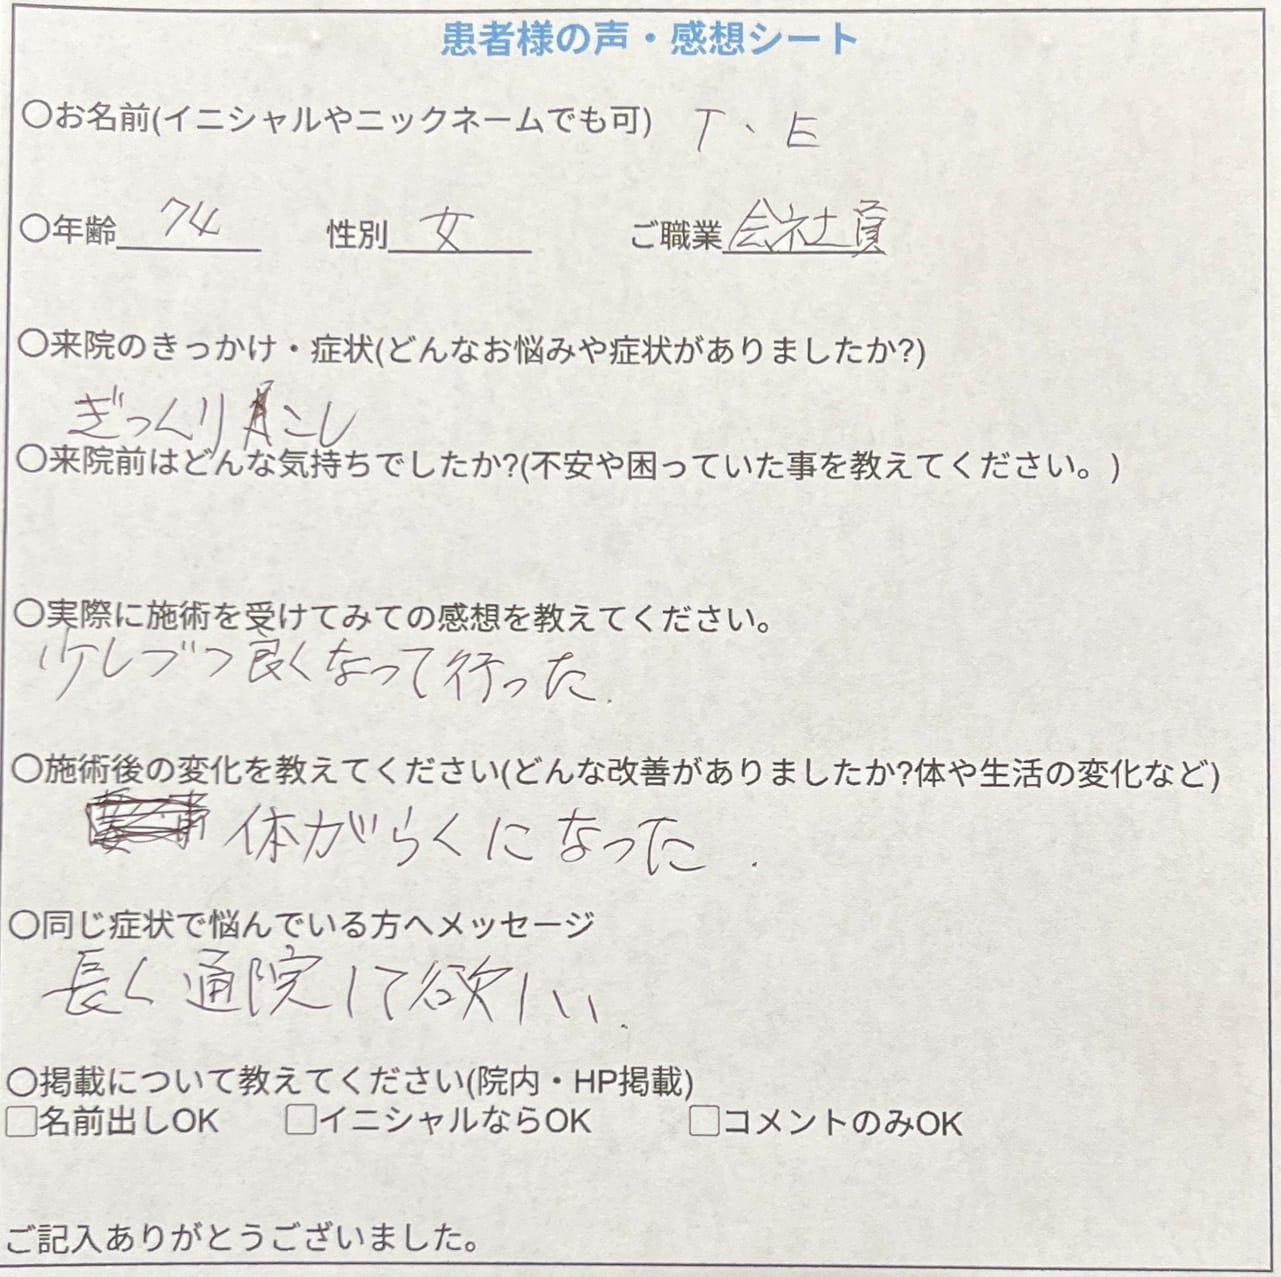 患者様の声・感想シート
〇お名前(イニシャルやニックネームでも可) T、E
〇年齢 74 性別 女 ご職業 会社員
〇来院のきっかけ・症状(どんなお悩みや症状がありましたか?)
ぎっくりこし
〇来院前はどんな気持ちでしたか?(不安や困っていた事を教えてください。)
〇実際に施術を受けてみての感想を教えてください。
少しづつ良くなって行った.
〇施術後の変化を教えてください(どんな改善がありましたか?体や生活の変化など)
体がらくになった.
〇同じ症状で悩んでいる方へメッセージ
長く通院して欲しい.
〇掲載について教えてください(院内・HP掲載)
□名前出しOK □イニシャルならOK □コメントのみOK
ご記入ありがとうございました。